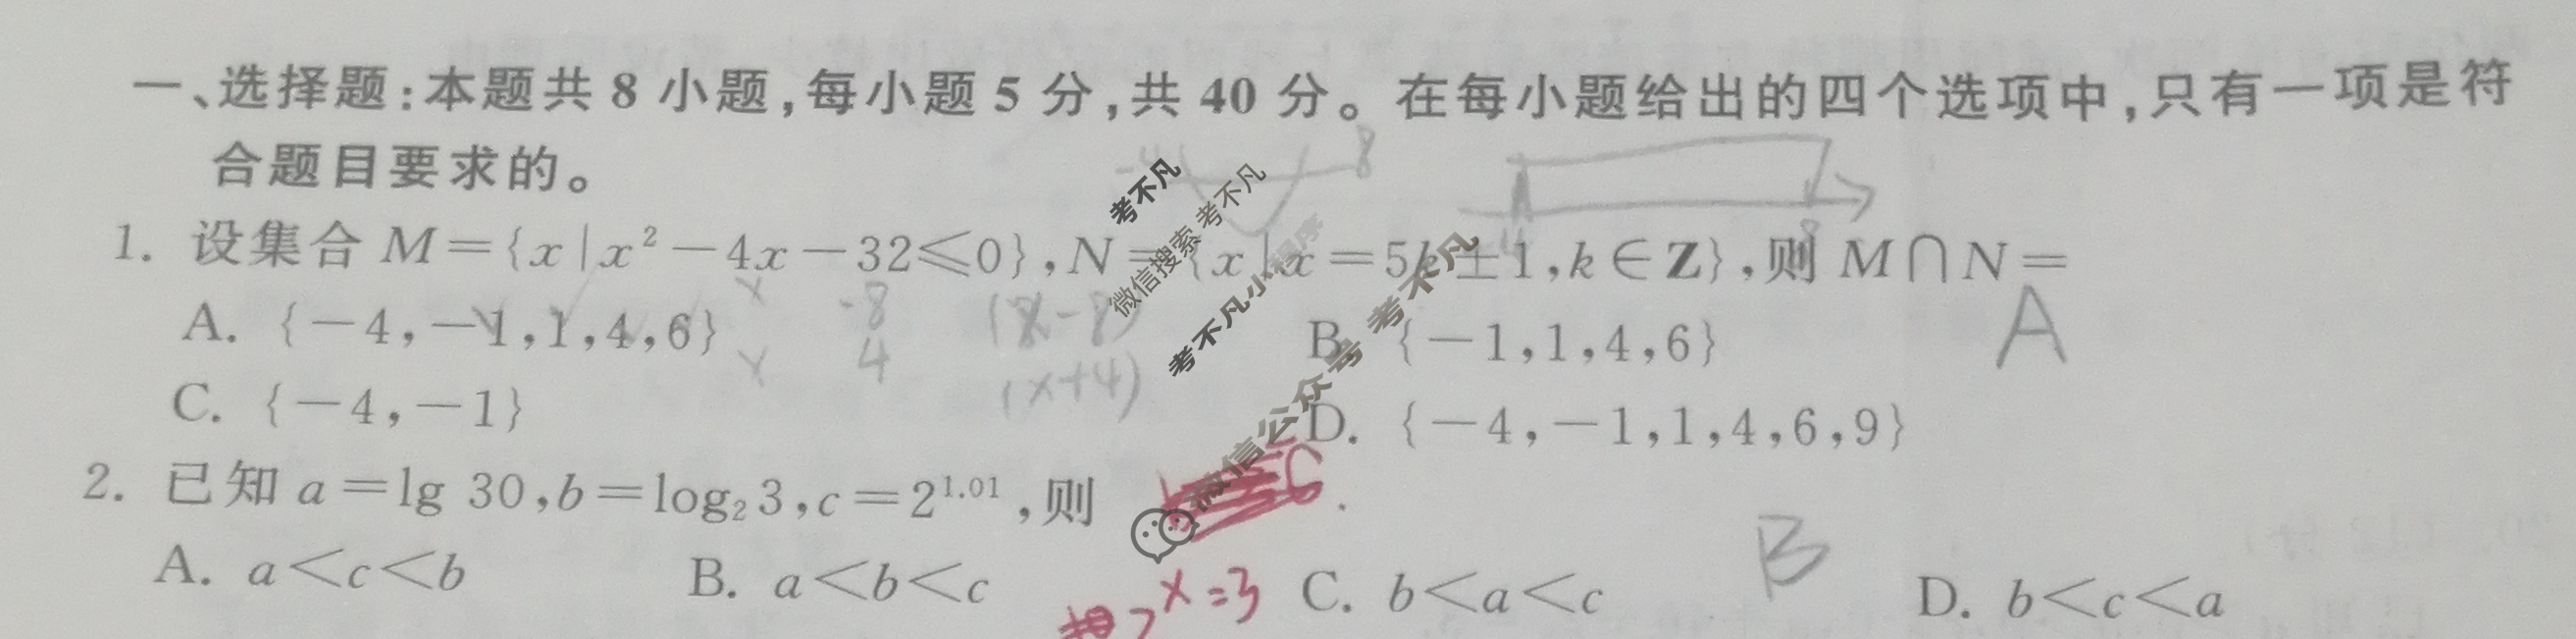 一、选择题:本题共 8 小题,每小题 5 分,共 40 分。在每小题给出的四个选项中,只有一项是符
合题目要求的。
-4 8
1. 设集合 M={x|x²-4x-32≤0},N={x|x=5k±1,k∈Z},则 M∩N=
A
A. {-4,-1,1,4,6}
B. {-1,1,4,6}
x -8 (x-8)
x 4 (x+4)
C. {-4,-1}
D. {-4,-1,1,4,6,9}
2. 已知 a=lg 30,b=log₂3,c=2^1.01,则
C
B
A. a<c<b B. a<b<c C. b<a<c D. b<c<a
2^x=3
考不凡
微信搜索 考不凡
考不凡小程序
微信公众号 考不凡